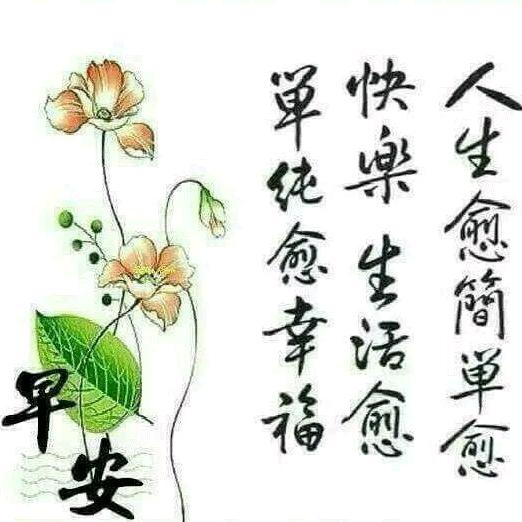 人生愈簡单愈
快樂生活愈
单纯愈幸福
早安